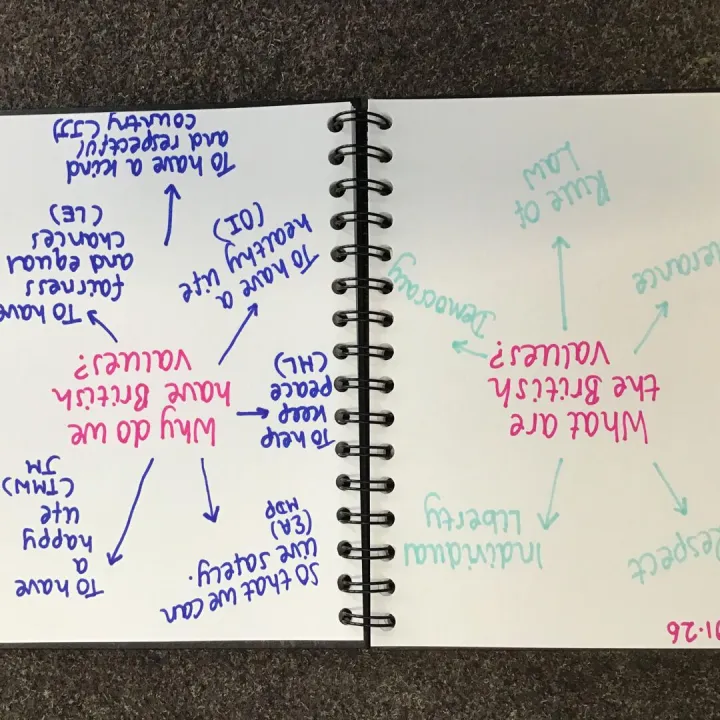 01.26
Respect
Individual
Liberty
What are
the British
values?
erance
Democracy
Rule of
Law
So that we can
live safely.
(EA)
MDP
To have
a
happy
life
(TMW)
JM
Why do we
have British
values?
To help
keep
peace
(HL)
To have a life
healthy
(OI)
To have
fairness
and equal
chances
(LE)
To have a kind
and respectful
country